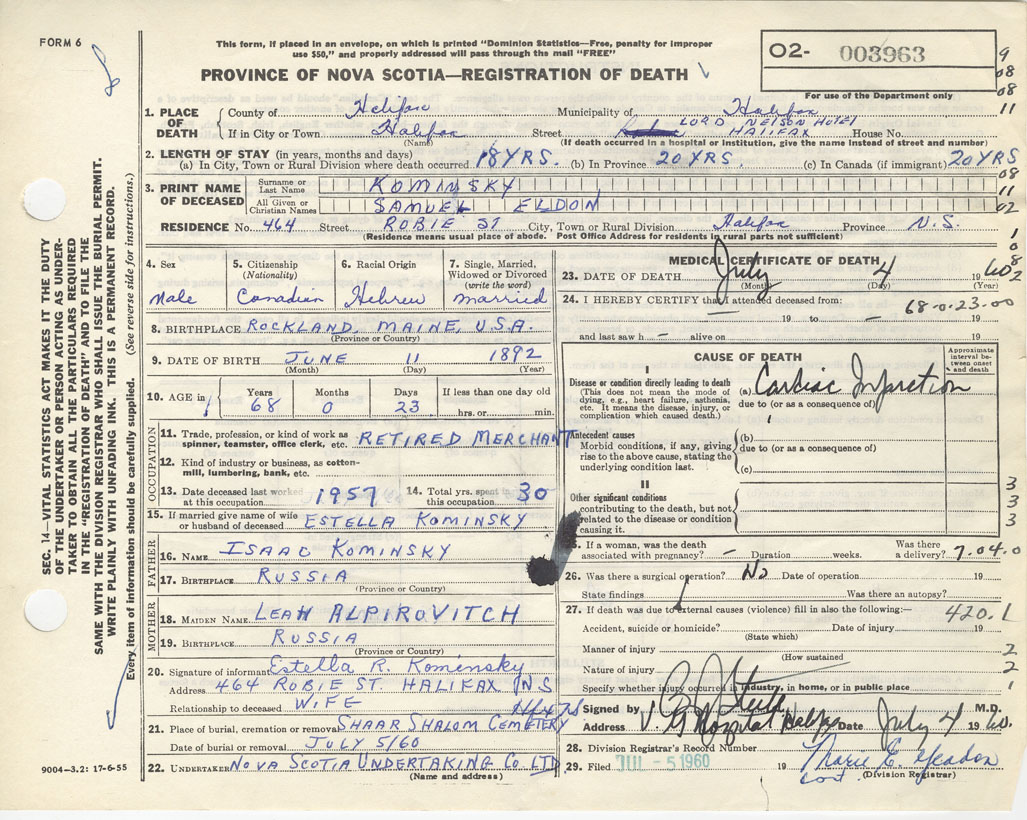 FORM 6
This form, if placed in an envelope, on which is printed "Dominion Statistics—Free, penalty for improper
use $50," and properly addressed will pass through the mail "FREE"
PROVINCE OF NOVA SCOTIA—REGISTRATION OF DEATH
O2- 003963
For use of the Department only
9
08
08
11
08
11
02
1
0
8
02
SEC. 14—VITAL STATISTICS ACT MAKES IT THE DUTY
OF THE UNDERTAKER OR PERSON ACTING AS UNDER-
TAKER TO OBTAIN ALL THE PARTICULARS REQUIRED
IN THE "REGISTRATION OF DEATH" AND TO FILE THE
SAME WITH THE DIVISION REGISTRAR WHO SHALL ISSUE THE BURIAL PERMIT.
WRITE PLAINLY WITH UNFADING INK. THIS IS A PERMANENT RECORD.
Every item of information should be carefully supplied. (See reverse side for instructions.)
1. PLACE OF DEATH County of Halifax Municipality of Halifax
If in City or Town Halifax Street LORD NELSON HOTEL HALIFAX House No.
(Name) (If death occurred in a hospital or institution, give the name instead of street and number)
2. LENGTH OF STAY (in years, months and days)
(a) In City, Town or Rural Division where death occurred 18 YRS. (b) In Province 20 YRS. (c) In Canada (if immigrant) 20 YRS
3. PRINT NAME OF DECEASED Surname or Last Name KOMINSKY
All Given or Christian Names SAMUEL ELDON
RESIDENCE No. 464 Street ROBIE ST City, Town or Rural Division Halifax Province N.S.
(Residence means usual place of abode. Post Office Address for residents in rural parts not sufficient)
4. Sex 5. Citizenship (Nationality) 6. Racial Origin 7. Single, Married, Widowed or Divorced (write the word)
Male Canadian Hebrew married
8. BIRTHPLACE ROCKLAND, MAINE, U.S.A.
(Province or Country)
9. DATE OF BIRTH JUNE 11 1892
(Month) (Day) (Year)
10. AGE in Years Months Days If less than one day old
68 0 23 hrs. or min.
OCCUPATION
11. Trade, profession, or kind of work as spinner, teamster, office clerk, etc. RETIRED MERCHANT
12. Kind of industry or business, as cotton-mill, lumbering, bank, etc.
13. Date deceased last worked at this occupation 1957 14. Total yrs. spent in this occupation 30
15. If married give name of wife or husband of deceased ESTELLA KOMINSKY
FATHER
16. NAME ISAAC KOMINSKY
17. BIRTHPLACE RUSSIA
(Province or Country)
MOTHER
18. MAIDEN NAME LEAH ALPIROVITCH
19. BIRTHPLACE RUSSIA
(Province or Country)
20. Signature of informant Estella R. Kominsky
Address 464 ROBIE ST. HALIFAX N S
Relationship to deceased WIFE
21. Place of burial, cremation or removal SHAAR SHALOM CEMETERY
Date of burial or removal JULY 5/60
22. UNDERTAKER NOVA SCOTIA UNDERTAKING CO. LTD.
(Name and address)
9004—3.2: 17-6-55
MEDICAL CERTIFICATE OF DEATH
23. DATE OF DEATH July 4 1960
(Month) (Day) (Year)
24. I HEREBY CERTIFY that I attended deceased from: 68-0-23-00
— 19 to — 19
and last saw h — alive on 19
CAUSE OF DEATH
Approximate interval between onset and death
I
Disease or condition directly leading to death
(This does not mean the mode of dying, e.g., heart failure, asthenia, etc. It means the disease, injury, or complication which caused death.)
(a) Cardiac Infarction
due to (or as a consequence of)
Antecedent causes
Morbid conditions, if any, giving rise to the above cause, stating the underlying condition last.
(b)
due to (or as a consequence of)
(c)
II
Other significant conditions
contributing to the death, but not related to the disease or condition causing it.
3
3
3
5. If a woman, was the death associated with pregnancy? — Duration weeks. Was there a delivery? 7.04.0
26. Was there a surgical operation? No Date of operation 19
State findings Was there an autopsy?
27. If death was due to external causes (violence) fill in also the following:— 420.1
Accident, suicide or homicide? Date of injury 19
(State which)
Manner of injury 2
(How sustained
Nature of injury 2
Specify whether injury occurred in industry, in home, or in public place 1
Signed by M.D.
Address V. G. Hospital Halifax Date July 4 1960.
28. Division Registrar's Record Number
29. Filed JUL - 5 1960 19 Marie E.
(Division Registrar)